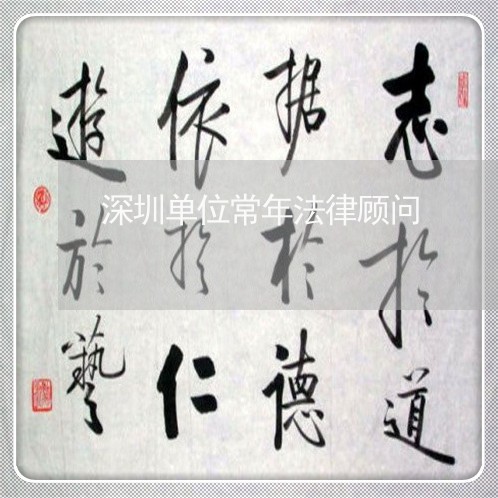 志於道
据於德
依於仁
遊於藝
深圳单位常年法律顾问